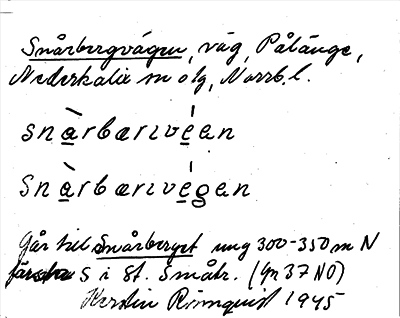 Snårbergvägen, väg, Pålänge,
Nederkalix sn o lg, Norrb. l.
snàrbærɪvéen
Snàrbærɪvégen
Går till Snårberget ung 300-350 m N
S i st. Småtr. (Gn 37 NO)
Kerstin Rönnquist 1945